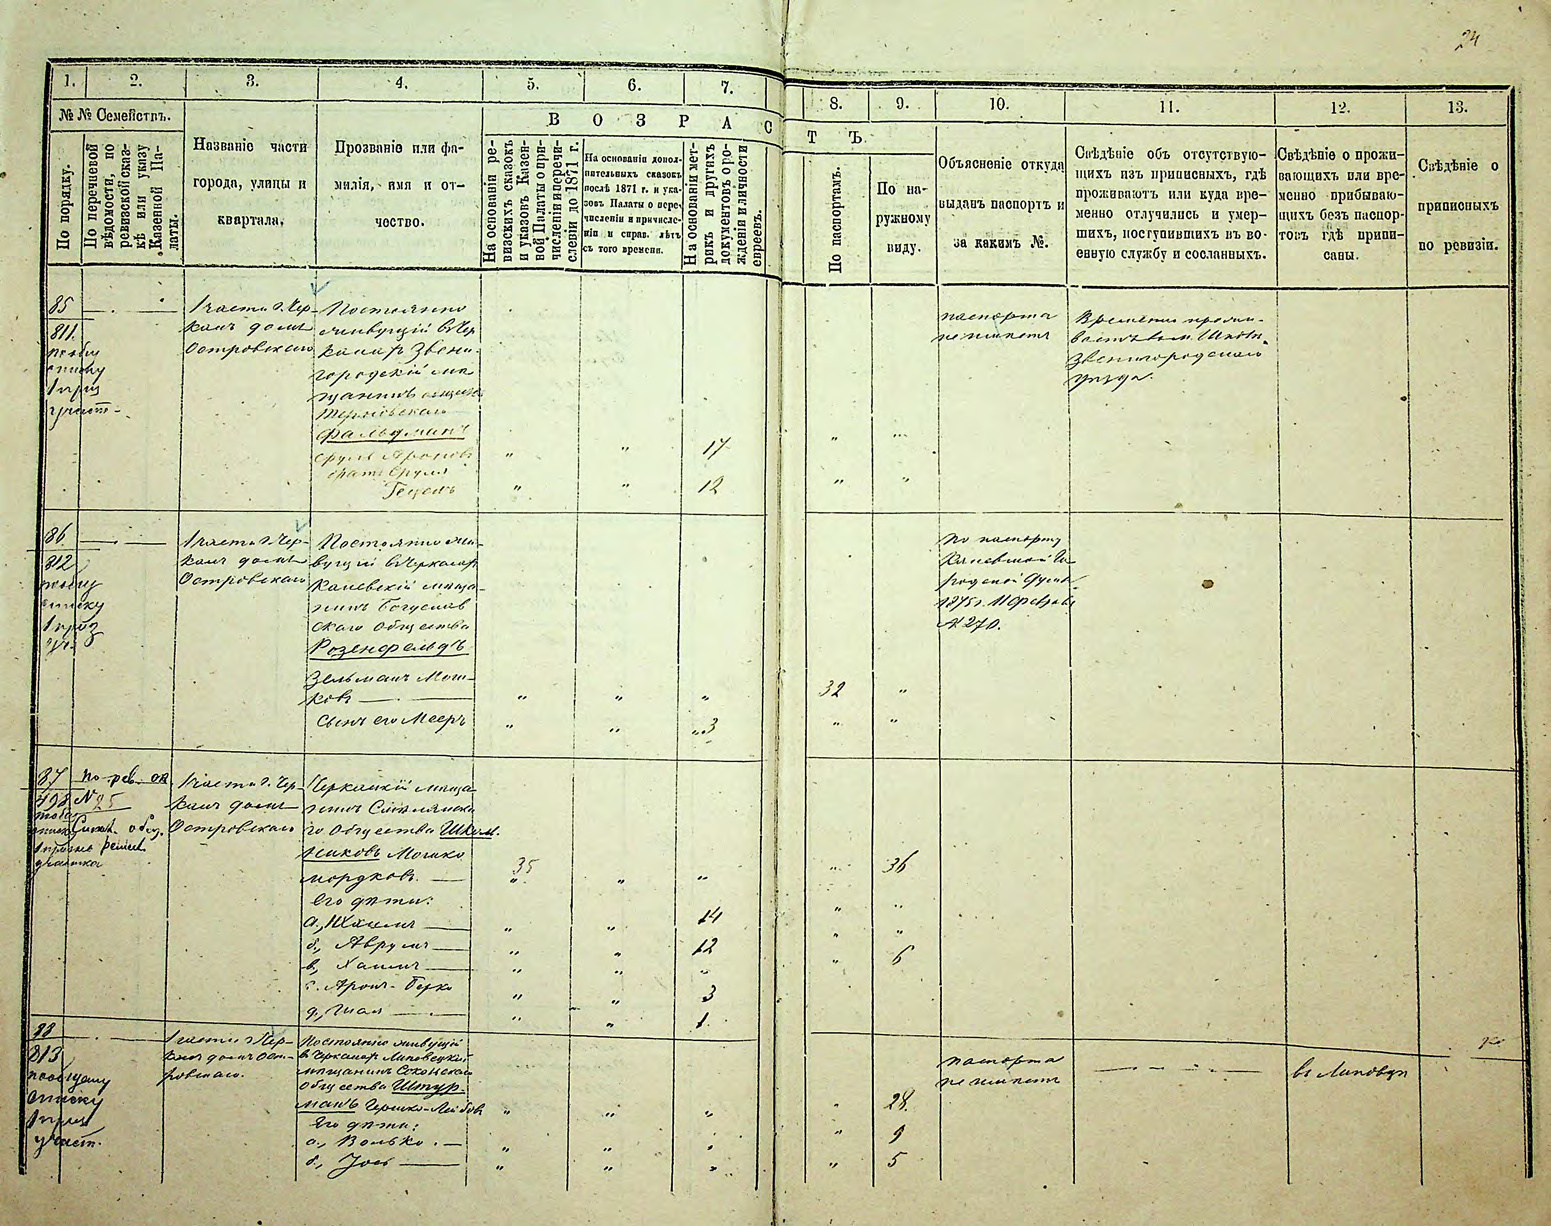 24
1.
2.
3.
4.
5.
6.
7.
8.
9.
10.
11.
12.
13.
№ № Семействъ.
По порядку.
По перечневой
вѣдомости, по
ревизской сказ-
кѣ или указу
Казенной Па-
латы.
Названіе части
города, улицы и
квартала.
Прозваніе или фа-
милія, имя и от-
чество.
ВОЗРАСТЪ.
На основаніи ре-
визскихъ сказокъ
и указовъ Казен-
ной Палаты о при-
численіи и перечи-
сленіи до 1871 г.
На основаніи допол-
нительныхъ сказокъ
послѣ 1871 г. и ука-
зовъ Палаты о пере-
численіи и причисле-
ніи и справ. лѣтъ
съ того времени.
На основаніи мет-
рикъ и другихъ
документовъ о ро-
жденіи и личности
евреевъ.
По паспортамъ.
По на-
ружному
виду.
Объясненіе откуда
выданъ паспортъ и
за какимъ №.
Свѣдѣніе объ отсутствую-
щихъ изъ приписныхъ, гдѣ
проживаютъ или куда вре-
менно отлучились и умер-
шихъ, поступившихъ въ во-
енную службу и сосланныхъ.
Свѣдѣніе о прожи-
вающихъ или вре-
менно прибываю-
щихъ безъ паспор-
товъ гдѣ припи-
саны.
Свѣдѣніе о
приписныхъ
по ревизіи.
85
811.
списку
1 приз
участ-
1 части г. Чер-
касъ домъ
Островскаго
Постоянно
живущій в Чер
касахъ Звени-
городскій мѣ
щанинъ
Фальдманъ
Сруль Аронов
братъ Сруля
Гецель
" " 17 " "
" " 12 " "
паспорта
не имѣетъ
Временно прожи-
Звенигородскаго
уѣзда.
86
812
списку
1 приз
уч.
1 части г. Чер-
касъ домъ
Островскаго
Постоянно жи-
вущій в Черкасах
Каневскій мѣща-
нинъ Богуслав
скаго общества
Розенфельдъ
Зельманъ Мош-
ковъ
" " " 32 "
сынъ его Мееръ
" " 3 " "
по паспорту
Каневской Го
родской
1875 г. 11 февраля
№ 270.
87
498
1 призыв
участка
по рев. ск.
№ 25
1 части г. Чер
касъ домъ
Островскаго
Черкаскій мѣща
нинъ Смѣлянска
го общества Школ
никовъ Мошко
Мордковъ
35 " " " 36
Его дѣти:
а., " " 14 " "
б., Аврумъ " " 12 " "
в., Хаимъ " " " " 6
г. Аронъ-Берко " " 3
д., " " 1.
88
813
посемному
списку
1 приз
участ.
1 части г. Чер-
касъ домъ Ост-
ровскаго.
Постоянно живущій
в Черкасах Липовецкій
мѣщанинъ
общества Штур-
манъ Гершко-Лейбов
" " " " 28.
Его дѣти:
а., Волько. " " " " 9
б., Іось " " " " 5
паспорта
не имѣетъ
в Липовцѣ